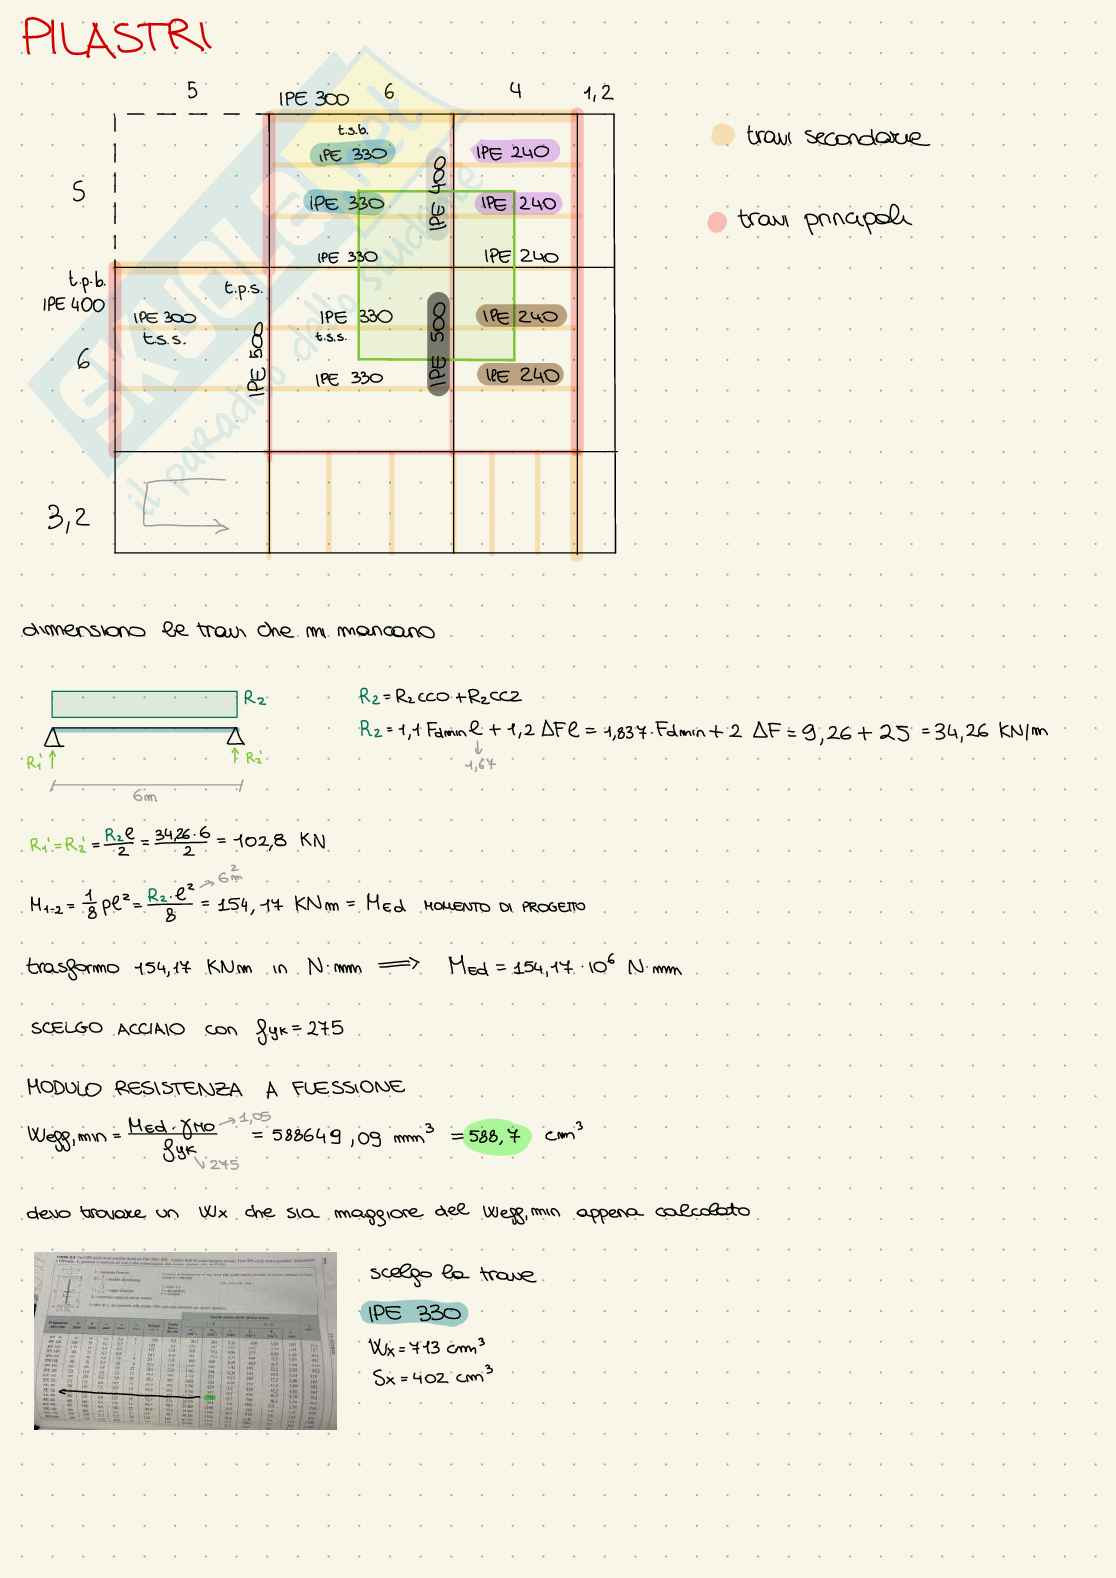 PILASTRI
5 IPE 300 6 4 1,2
travi secondarie
t.s.b.
IPE 330 IPE 240
IPE 400
5
IPE 330 IPE 240
travi principali
IPE 330 IPE 240
t.p.b.
IPE 400
t.p.s.
IPE 300
t.s.s.
IPE 330
t.s.s.
IPE 240
IPE 500
IPE 500
6
IPE 330 IPE 240
3,2
SKUOLA.net
il paradiso dello studente
dimensiono le travi che mi mancano
R2
R1' R2'
6m
R2 = R2cc0 + R2cc2
R2 = 1,1 Fdmin l + 1,2 ΔF l = 1,837 · Fdmin + 2 ΔF = 9,26 + 25 = 34,26 KN/m
1,67
R1' = R2' = R2 l / 2 = 34,26 · 6 / 2 = 102,8 KN
6² m
M1-2 = 1/8 pl² = R2 · l² / 8 = 154,17 KNm = MEd MOMENTO DI PROGETTO
trasformo 154,17 KNm in N·mm ⟹ MEd = 154,17 · 10⁶ N·mm
SCELGO ACCIAIO con fyk = 275
MODULO RESISTENZA A FLESSIONE
Weff,min = MEd · γM0 / fyk = 588649,09 mm³ = 588,7 cm³
1,05
275
devo trovare un Wx che sia maggiore del Weff,min appena calcolato
scelgo la trave
IPE 330
Wx = 713 cm³
Sx = 402 cm³